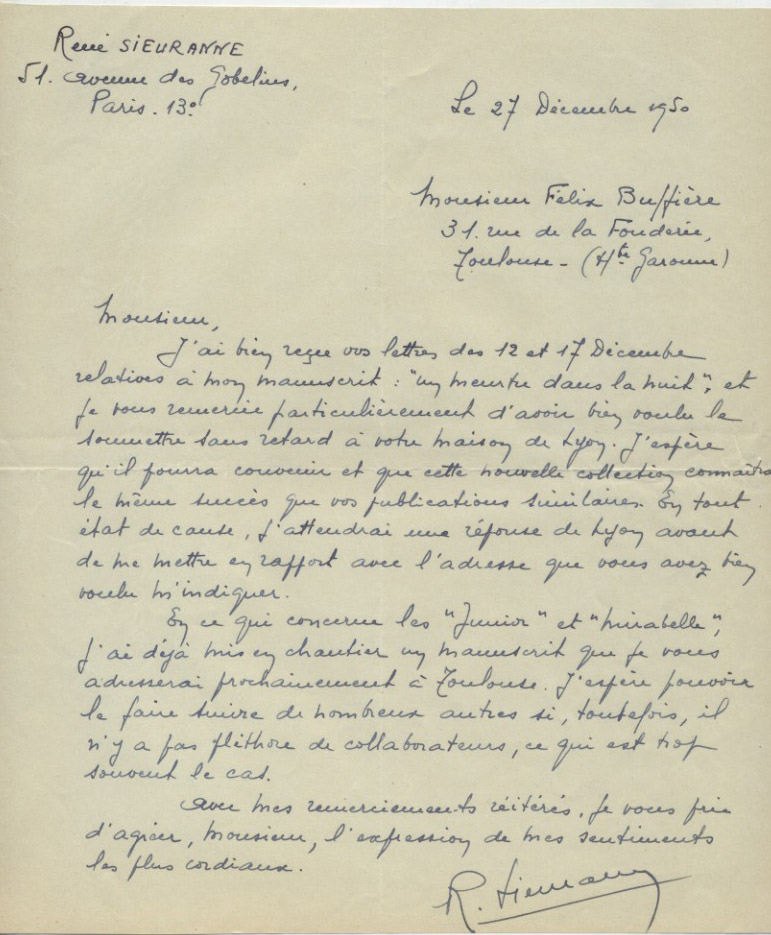 René SIEURANNE
51. avenue des Gobelins,
Paris. 13e
Le 27 Décembre 1950
Monsieur Félix Buffière
31. rue de la Fonderie,
Toulouse - (Hte Garonne)
Monsieur,
J'ai bien reçue vos lettres des 12 et 17 Décembre
relatives à mon manuscrit : "un meurtre dans la nuit", et
je vous remercie particulièrement d'avoir bien voulu le
soumettre sans retard à votre maison de Lyon. J'espère
qu'il pourra convenir et que cette nouvelle collection connaîtra
le même succès que vos publications similaires. En tout
état de cause, j'attendrai une réponse de Lyon avant
de me mettre en rapport avec l'adresse que vous avez bien
voulu m'indiquer.
En ce qui concerne les "Junior" et "Mirabelle",
j'ai déjà mis en chantier un manuscrit que je vous
adresserai prochainement à Toulouse. J'espère pouvoir
le faire suivre de nombreux autres si, toutefois, il
n'y a pas pléthore de collaborateurs, ce qui est trop
souvent le cas.
Avec mes remerciements réitérés, je vous prie
d'agréer, Monsieur, l'expression de mes sentiments
les plus cordiaux.
R. Sieuranne